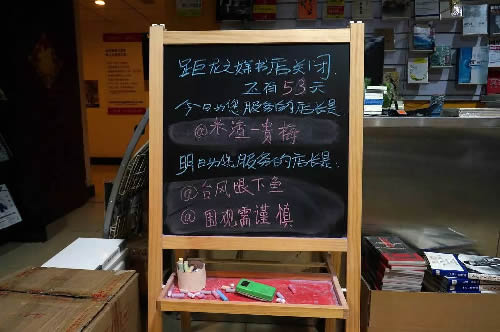 距巨龙之媒书店关闭
还有53天
今日为您服务的店长是
@米渣一贵梅
明日为您服务的店长是:
@台风眼下鱼
@围观需谨慎